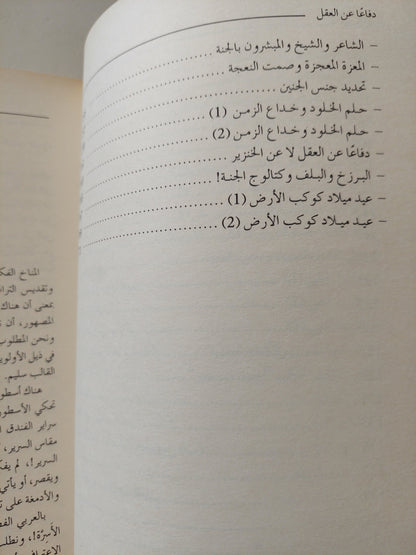 دفاعًا عن العقل
– الشاعر والشيخ والمبشرون بالجنة ........................
– المعزة المعجزة وصمت النعجة ........................
– تحديد جنس الجنين ........................
– حلم الخلود وخداع الزمن (1) ........................
– حلم الخلود وخداع الزمن (2) ........................
– دفاعًا عن العقل لا عن الخنزير ........................
– البرزخ والبلف وكتالوج الجنة! ........................
– عيد ميلاد كوكب الأرض (1) ........................
– عيد ميلاد كوكب الأرض (2) ........................
المناخ
وتقديس
بمعنى أن هناك
المصهور، أن
ونحن المطلوب
في ذيل
القالب سليم.
هناك
تحكي
سراير الفندق
مقاس السرير،
السرير!، لم
ويقصر، أو يأتي
والأدمغة على
بالعربي
الأسِرَّة!، ونطلب